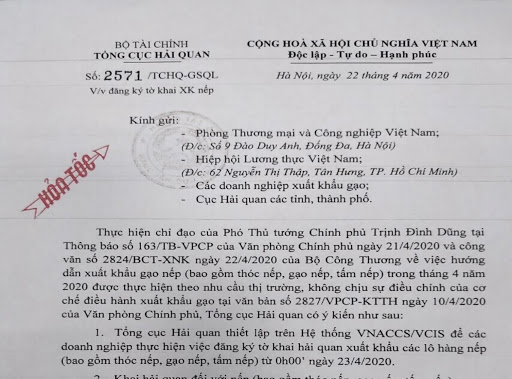 BỘ TÀI CHÍNH
TỔNG CỤC HẢI QUAN
CỘNG HOÀ XÃ HỘI CHỦ NGHĨA VIỆT NAM
Độc lập - Tự do – Hạnh phúc
Số: 2571 /TCHQ-GSQL
V/v đăng ký tờ khai XK nếp
Hà Nội, ngày 22 tháng 4 năm 2020
HỎA TỐC
Kính gửi:
- Phòng Thương mại và Công nghiệp Việt Nam;
(Đ/c: Số 9 Đào Duy Anh, Đống Đa, Hà Nội)
- Hiệp hội Lương thực Việt Nam;
(Đ/c: 62 Nguyễn Thị Thập, Tân Hưng, TP. Hồ Chí Minh)
- Các doanh nghiệp xuất khẩu gạo;
- Cục Hải quan các tỉnh, thành phố.
Thực hiện chỉ đạo của Phó Thủ tướng Chính phủ Trịnh Đình Dũng tại
Thông báo số 163/TB-VPCP của Văn phòng Chính phủ ngày 21/4/2020 và công
văn số 2824/BCT-XNK ngày 22/4/2020 của Bộ Công Thương về việc hướng
dẫn xuất khẩu gạo nếp (bao gồm thóc nếp, gạo nếp, tấm nếp) trong tháng 4 năm
2020 được thực hiện theo nhu cầu thị trường, không chịu sự điều chỉnh của cơ
chế điều hành xuất khẩu gạo tại văn bản số 2827/VPCP-KTTH ngày 10/4/2020
của Văn phòng Chính phủ, Tổng cục Hải quan có ý kiến như sau:
1. Tổng cục Hải quan thiết lập trên Hệ thống VNACCS/VCIS để các
doanh nghiệp thực hiện việc đăng ký tờ khai hải quan xuất khẩu các lô hàng nếp
(bao gồm thóc nếp, gạo nếp, tấm nếp) từ 0h00' ngày 23/4/2020.
2. Khai hải quan đối với nếp (bao gồm thóc nếp